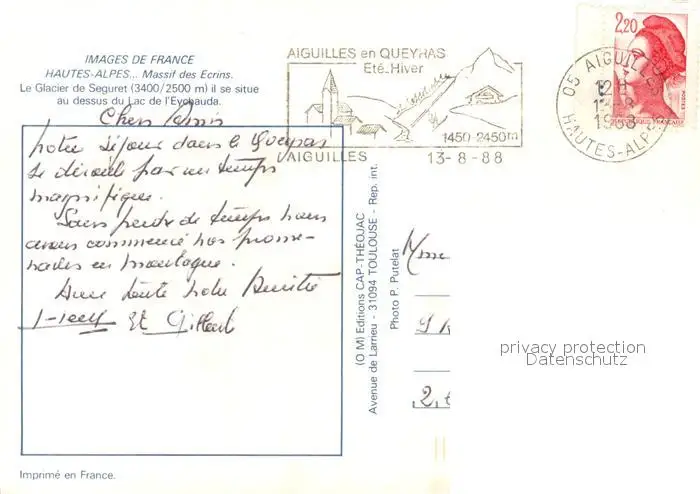 IMAGES DE FRANCE
HAUTES-ALPES... Massif des Ecrins.
Le Glacier de Seguret (3400/2500 m) il se situe
au dessus du Lac de l'Eychauda.
Chers Amis
Notre séjour dans le Queyras
se déroule par un temps
magnifique.
Sans perdre de temps nous
avons commencé nos prome-
nades en montagne.
Avec toute notre Amitié
et Gilbert
Imprimé en France.
(O M) Editions CAP-THÉOJAC
Avenue de Larrieu - 31094 TOULOUSE - Rep. int.
Photo P. Putelat
AIGUILLES en QUEYRAS
Eté-Hiver
1450-2450m
AIGUILLES 13-8-88
05 AIGUILLES
12H
13-8
1988
HAUTES-ALPES
2,20
POSTES
REPUBLIQUE FRANÇAISE
Mme
privacy protection
Datenschutz